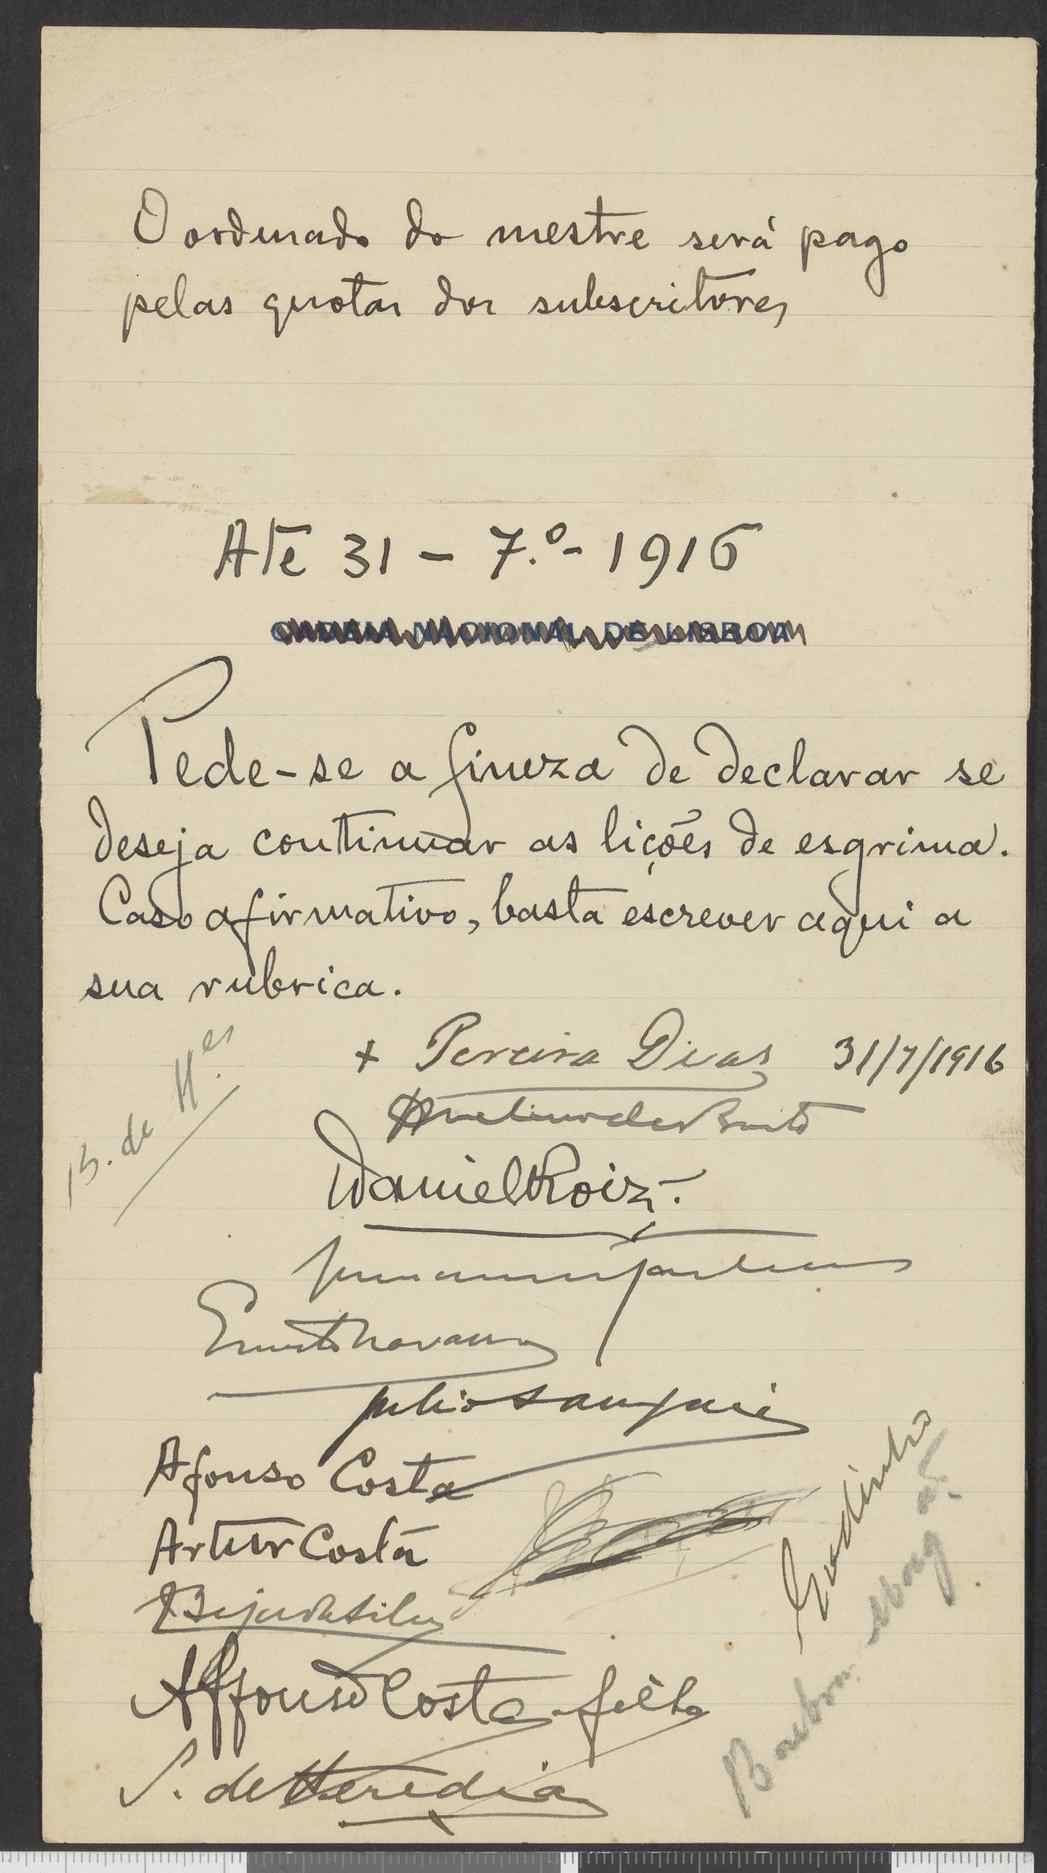 O ordenado do mestre será pago
pelas quotas dos subscritores
Até 31 - 7.º - 1916
CADEIA NACIONAL DE LISBOA
Pede-se a fineza de declarar se
deseja continuar as lições de esgrima.
Caso afirmativo, basta escrever aqui a
sua rubrica.
+ Pereira Dias 31/7/1916
B. de H.es
Daniel Roiz.
Afonso Costa
Artur Costa
Affonso Costa filho
S. de Heredia
Godinho